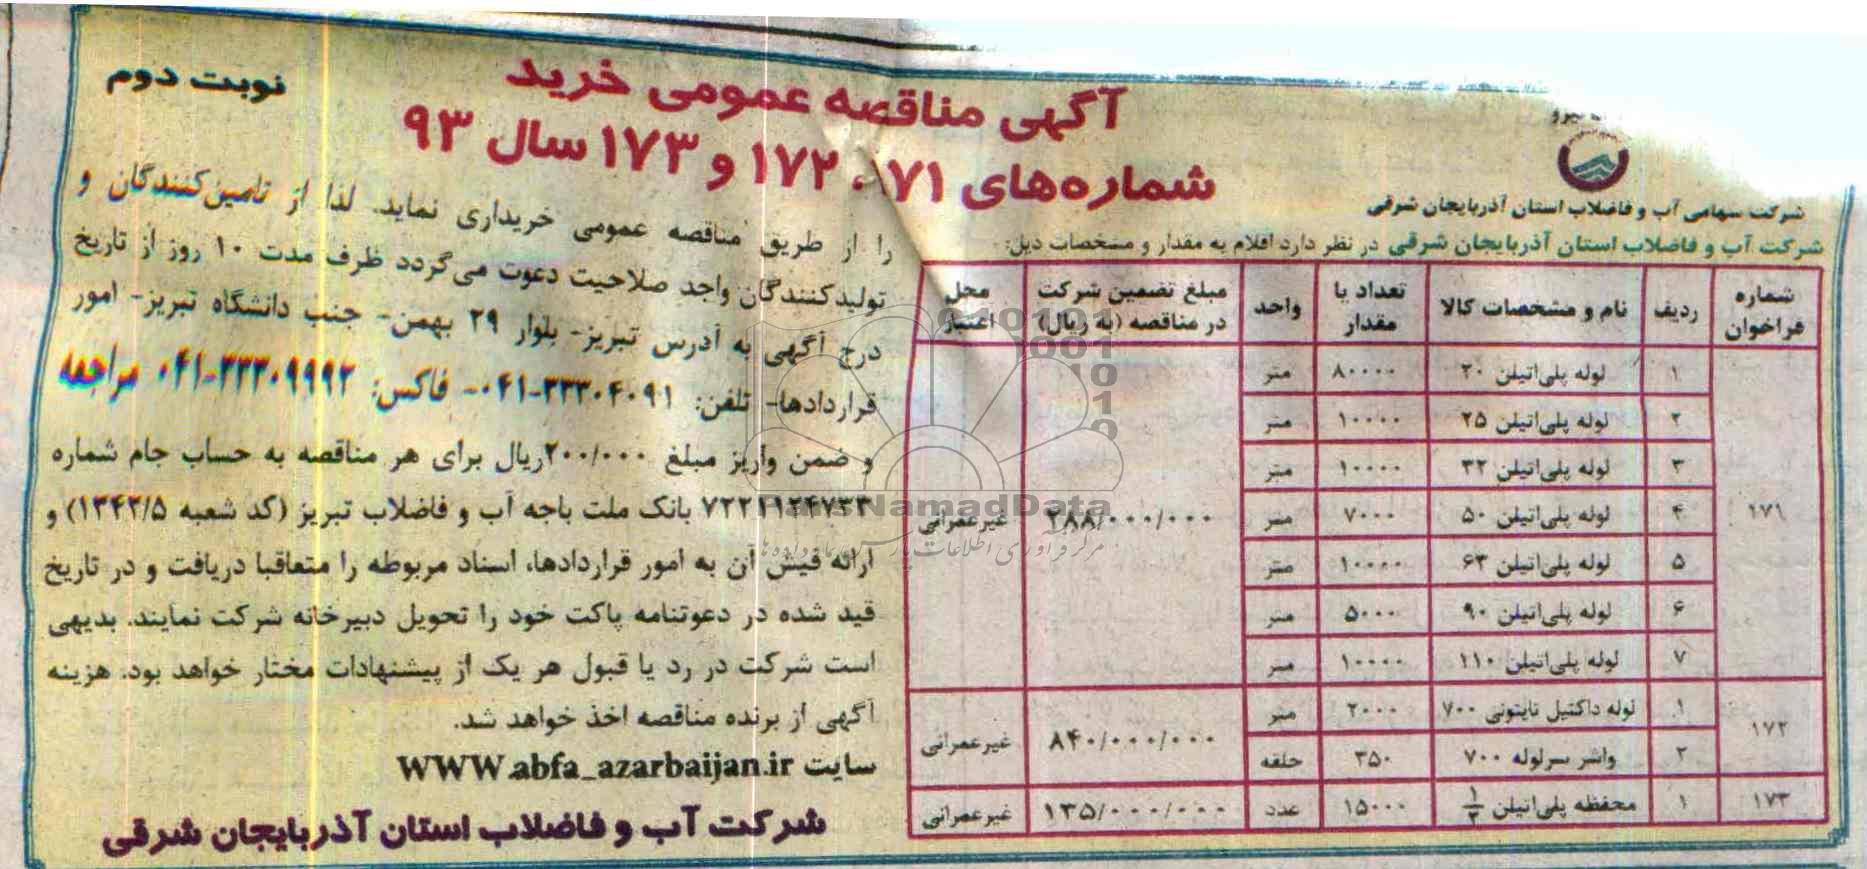 نوبت دوم
آگهی مناقصه عمومی خرید
شماره‌های ۱۷۱، ۱۷۲ و ۱۷۳ سال ۹۳
شرکت سهامی آب و فاضلاب استان آذربایجان شرقی
شرکت آب و فاضلاب استان آذربایجان شرقی در نظر دارد اقلام به مقدار و مشخصات ذیل:
شماره فراخوان ردیف نام و مشخصات کالا تعداد یا مقدار واحد مبلغ تضمین شرکت در مناقصه (به ریال) محل اعتبار
۱۷۱ ۱ لوله پلی‌اتیلن ۲۰ ۸۰۰۰۰ متر ۲۸۸/۰۰۰/۰۰۰ غیرعمرانی
۲ لوله پلی‌اتیلن ۲۵ ۱۰۰۰۰ متر
۳ لوله پلی‌اتیلن ۳۲ ۱۰۰۰۰ متر
۴ لوله پلی‌اتیلن ۵۰ ۷۰۰۰ متر
۵ لوله پلی‌اتیلن ۶۳ ۱۰۰۰۰ متر
۶ لوله پلی‌اتیلن ۹۰ ۵۰۰۰ متر
۷ لوله پلی‌اتیلن ۱۱۰ ۱۰۰۰۰ متر
۱۷۲ ۱ لوله داکتیل تایتونی ۷۰۰ ۲۰۰۰ متر ۸۴۰/۰۰۰/۰۰۰ غیرعمرانی
۲ واشر سرلوله ۷۰۰ ۳۵۰ حلقه
۱۷۳ ۱ محفظه پلی‌اتیلن ۱/۲ ۱۵۰۰۰ عدد ۱۳۵/۰۰۰/۰۰۰ غیرعمرانی
را از طریق مناقصه عمومی خریداری نماید. لذا از تامین‌کنندگان و
تولیدکنندگان واجد صلاحیت دعوت می‌گردد ظرف مدت ۱۰ روز از تاریخ
درج آگهی به آدرس تبریز- بلوار ۲۹ بهمن- جنب دانشگاه تبریز- امور
قراردادها- تلفن: ۳۳۳۰۴۰۹۱-۰۴۱- فاکس: ۳۳۳۰۹۹۹۲-۰۴۱ مراجعه
و ضمن واریز مبلغ ۲۰۰/۰۰۰ریال برای هر مناقصه به حساب جام شماره
۷۲۲۱۱۲۴۷۳۳ بانک ملت باجه آب و فاضلاب تبریز (کد شعبه ۱۳۴۲/۵) و
ارائه فیش آن به امور قراردادها، اسناد مربوطه را متعاقبا دریافت و در تاریخ
قید شده در دعوتنامه پاکت خود را تحویل دبیرخانه شرکت نمایند. بدیهی
است شرکت در رد یا قبول هر یک از پیشنهادات مختار خواهد بود. هزینه
آگهی از برنده مناقصه اخذ خواهد شد.
سایت WWW.abfa_azarbaijan.ir
شرکت آب و فاضلاب استان آذربایجان شرقی
ParsNamadData